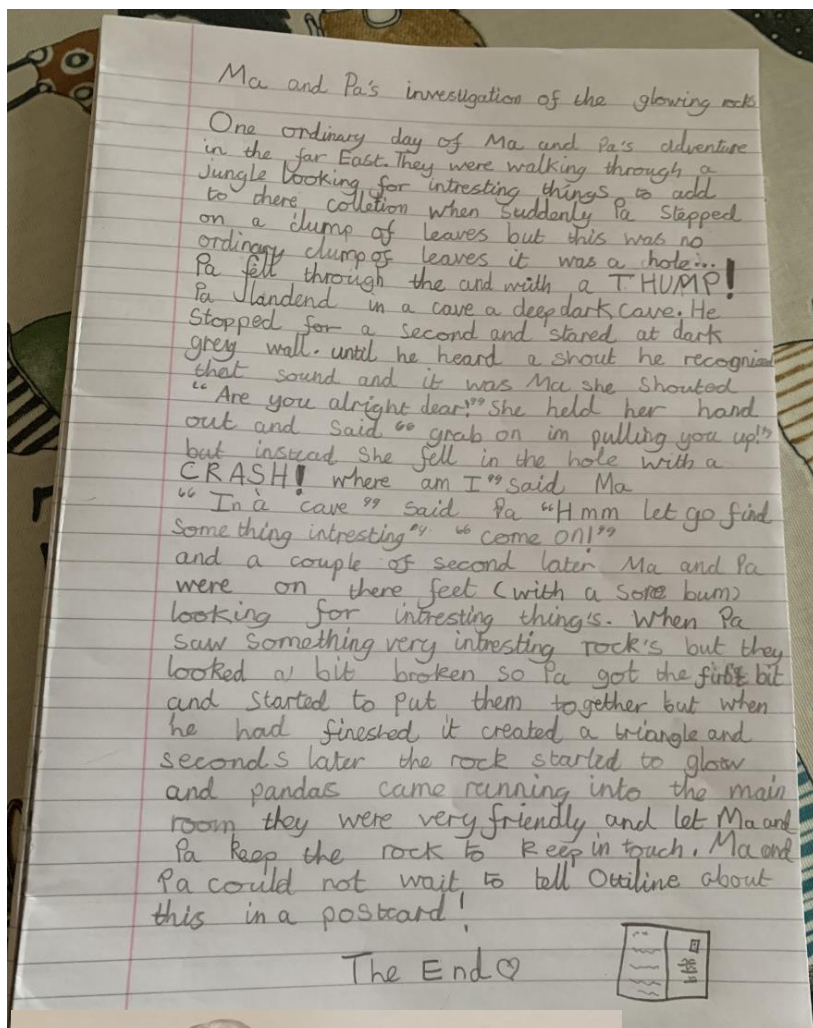 Ma and Pa's investigation of the glowing rocks
One ordinary day of Ma and Pa's adventure
in the far East. They were walking through a
jungle looking for intresting things to add
to there colletion when suddenly Pa stepped
on a clump of leaves but this was no
ordinary clump of leaves it was a hole...
Pa fell through the and with a THUMP!
Pa landend in a cave a deep dark cave. He
stopped for a second and stared at dark
grey wall. until he heard a shout he recognized
that sound and it was Ma she shouted
"Are you alright dear!" She held her hand
out and said "grab on im pulling you up!"
but instead she fell in the hole with a
CRASH! where am I" said Ma
"In a cave" said Pa "Hmm let go find
something intresting". "come on!"
and a couple of second later Ma and Pa
were on there feet (with a sore bum)
looking for intresting thing's. When Pa
saw something very intresting rock's but they
looked a bit broken so Pa got the first bit
and started to put them together but when
he had fineshed it created a triangle and
seconds later the rock started to glow
and pandas came running into the main
room they were very friendly and let Ma and
Pa keep the rock to keep in touch. Ma and
Pa could not wait to tell Ottiline about
this in a postcard!
The End♡